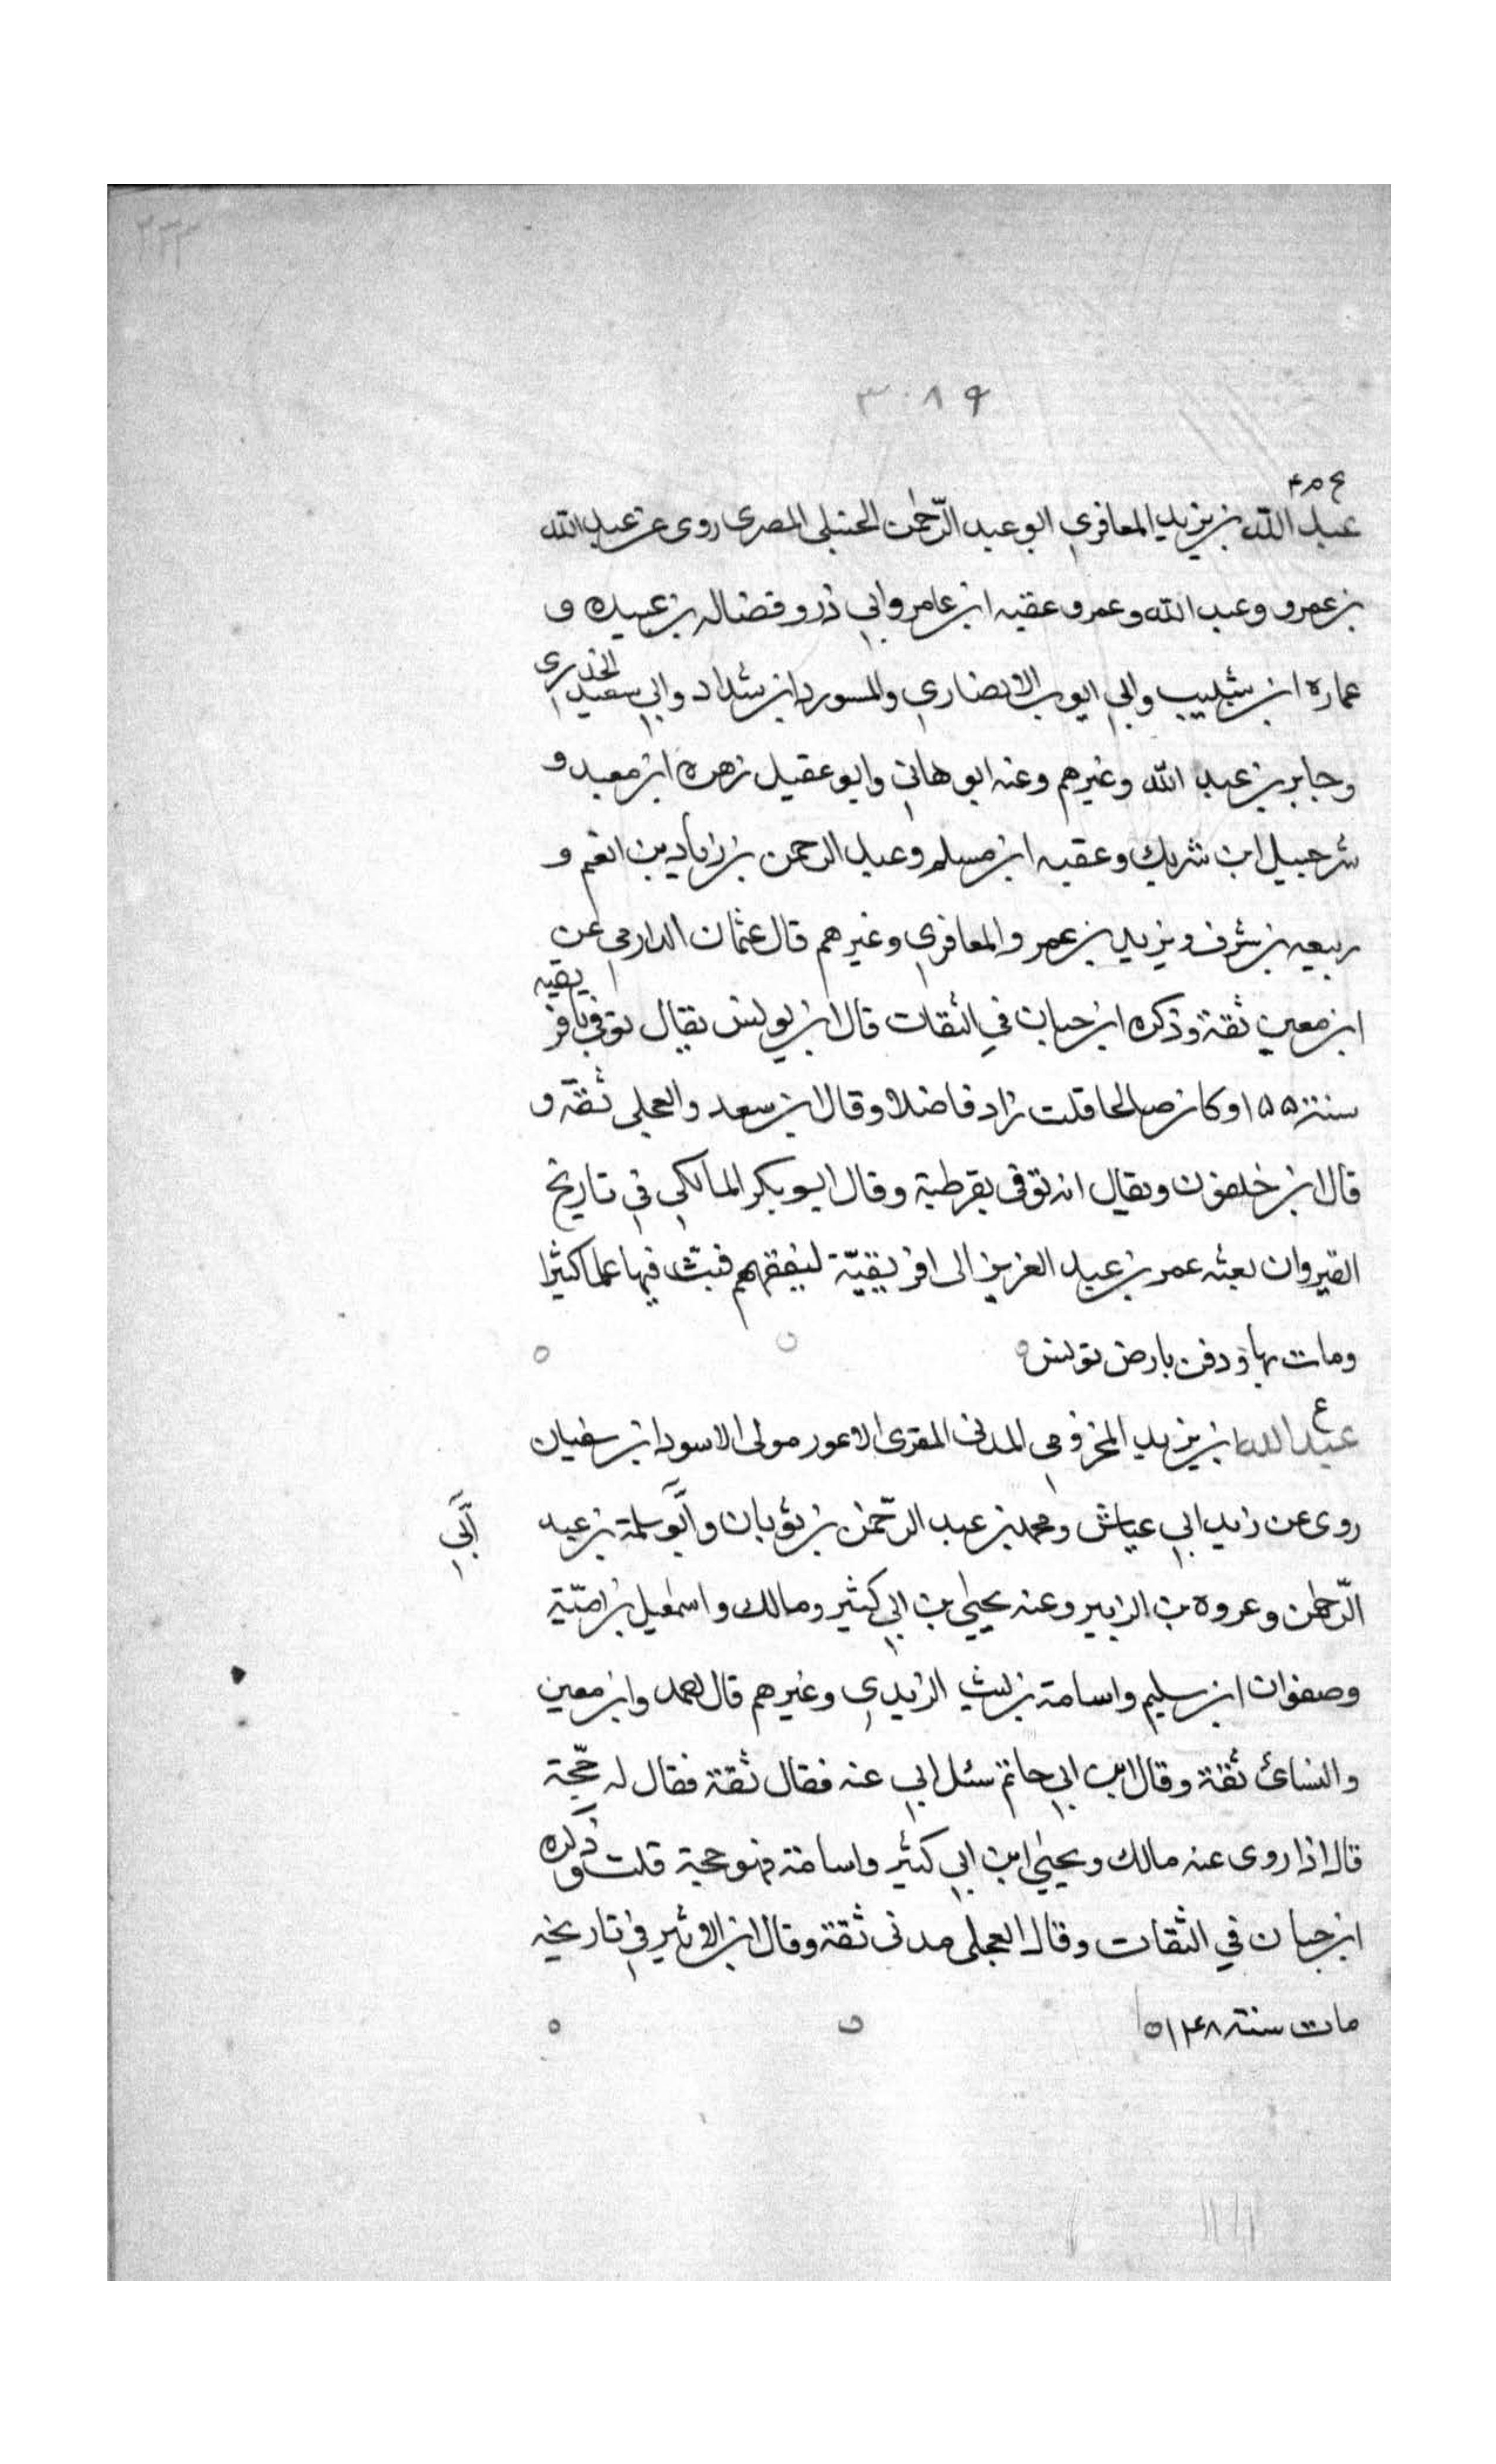 ٢٣٣
٣٠٨٩
ع م ۴
عبد الله بن يزيد المعافري ابو عبد الرّحمٰن الحنبلي المصرى روى عن عبد الله
بن عمرو وعبد الله وعمرو عقبه ابن عامر وابي ذر و فضاله بن عبيده و
عماره ابن شبيب وابي ايوب الانصاري والمسور دابن شداد وابي سعيد الخدرى
وجابر بن عبد الله وغيرهم وعنه ابو هاني وابو عقيل زهره ابن معبد و
شرحبيل ابن شريك وعقبه ابن مسلم وعبد الرحمن بن زياد بن انعم و
ربيعه بن شرف ويزيد بن عمر والمعافري وغيرهم قال عثمان الدارمي عن
ابن معين ثقة وذكره ابن حبان في الثقات قال ابن يونس يقال توفي بافريقيه
سنة ١٥٥ وكان صالحا قلت زاد فاضلا وقال ابن سعد والعجلى ثقة و
قال ابن خلفون ويقال انه توفى بقرطبة وقال ابو بكر المالكي في تاريخ
القيروان بعثه عمر بن عبد العزيز الى افريقيّة ليفقههم فبثّ فيها علما كثيرا
ومات بها و دفن بارض تونس
ع
عبد الله ابن يزيد المخزومي المدنى المقرى الاعور مولى الاسود ابن سفيان
روى عن زيد ابي عياش ومحمد بن عبد الرّحمٰن بن ثوبان وابو سلمة بن عبد
ابي
الرّحمٰن وعروه بن الزبير وعنه يحيى بن ابي كثير ومالك واسمٰعيل بن اميّة
وصفوان ابن سليم واسامة بن ليث الزيدي وغيرهم قال احمد وابن معين
والنسائ ثقة وقال ابن ابي حاتم سئل ابي عنه فقال ثقة فقال له حجّة
قال اذا روى عنه مالك ويحيى ابن ابي كثير واسامة فهو حجة قلت وذكره
ابن حبان في الثقات وقال العجلى مدنى ثقة وقال ابن الاثير في تاريخه
مات سنة ١٤٨